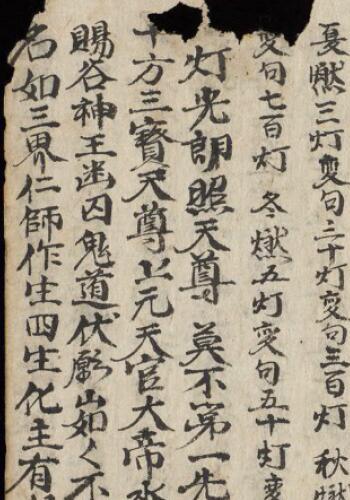 夏燃三灯変句三十灯変句三百灯 秋燃
変句七百灯 冬燃五灯変句五十灯変
灯光朗照天尊 莫不第一先
十方三寳天尊上元天官大帝水
賜谷神王幽囚鬼道伏願山如く不
名如三界仁師作生四生化主有